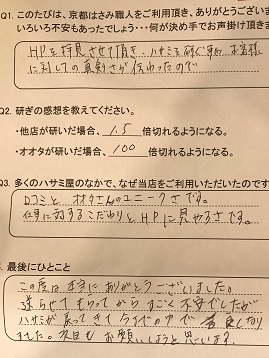 Q1. このたびは、京都はさみ職人をご利用頂き、ありがとうござい
いろいろ不安もあったでしょう・・・何が決め手でお声掛け頂きま
HPを拝見させて頂き、ハサミを研ぐ事や お客様
に対しての真剣さが伝わったので
Q2. 研ぎの感想を教えてください。
・他店が研いだ場合、1.5 倍切れるようになる。
・オオタが研いだ場合、100 倍切れるようになる。
Q3. 多くのハサミ屋のなかで、なぜ当店をご利用いただいたのです
口コミと オオタさんのユニークさです。
仕事に対するこだわりと HPに見やすさです。
最後にひとこと
この度は本当にありがとうございました。
送らせてもらってから すごく不安でしたが
ハサミが戻ってきて
ました。次回も お願いしようと思います。